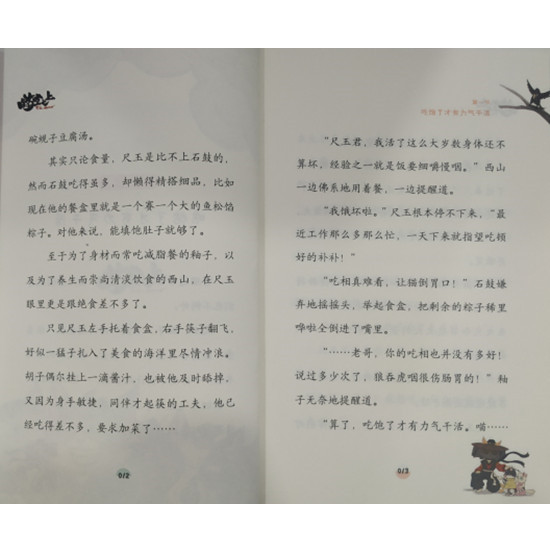 碗蚬子豆腐汤。
其实只论食量，尺玉是比不上石鼓的，
然而石鼓吃得虽多，却懒得精搭细品，比如
现在他的餐盒里就是一个赛一个大的鱼松馅
粽子。对他来说，能填饱肚子就够了。
至于为了身材而常吃减脂餐的釉子，以
及为了养生而崇尚清淡饮食的西山，在尺玉
眼里更是跟绝食差不多了。
只见尺玉左手托着食盒，右手筷子翻飞，
好似一猛子扎入了美食的海洋里尽情冲浪。
胡子偶尔挂上一滴酱汁，也被他及时舔掉，
又因为身手敏捷，同伴才起筷的工夫，他已
经吃得差不多，要求加菜了……
012
吃饱了才有力气干活
“尺玉君，我活了这么大岁数身体还不
算坏，经验之一就是饭要细嚼慢咽。”西山
一边佛系地用着餐，一边提醒道。
“我饿坏啦。”尺玉根本停不下来，“最
近工作那么多那么忙，一天下来就指望吃顿
好的补补！”
“吃相真难看，让猫倒胃口！”石鼓嫌
弃地摇摇头，举起食盒，把剩余的粽子稀里
哗啦全倒进了嘴里。
“……老哥，你的吃相也并没有多好！
说过多少次了，狼吞虎咽很伤肠胃的！”釉
子无奈地提醒道。
“算了，吃饱了才有力气干活。喵……
013